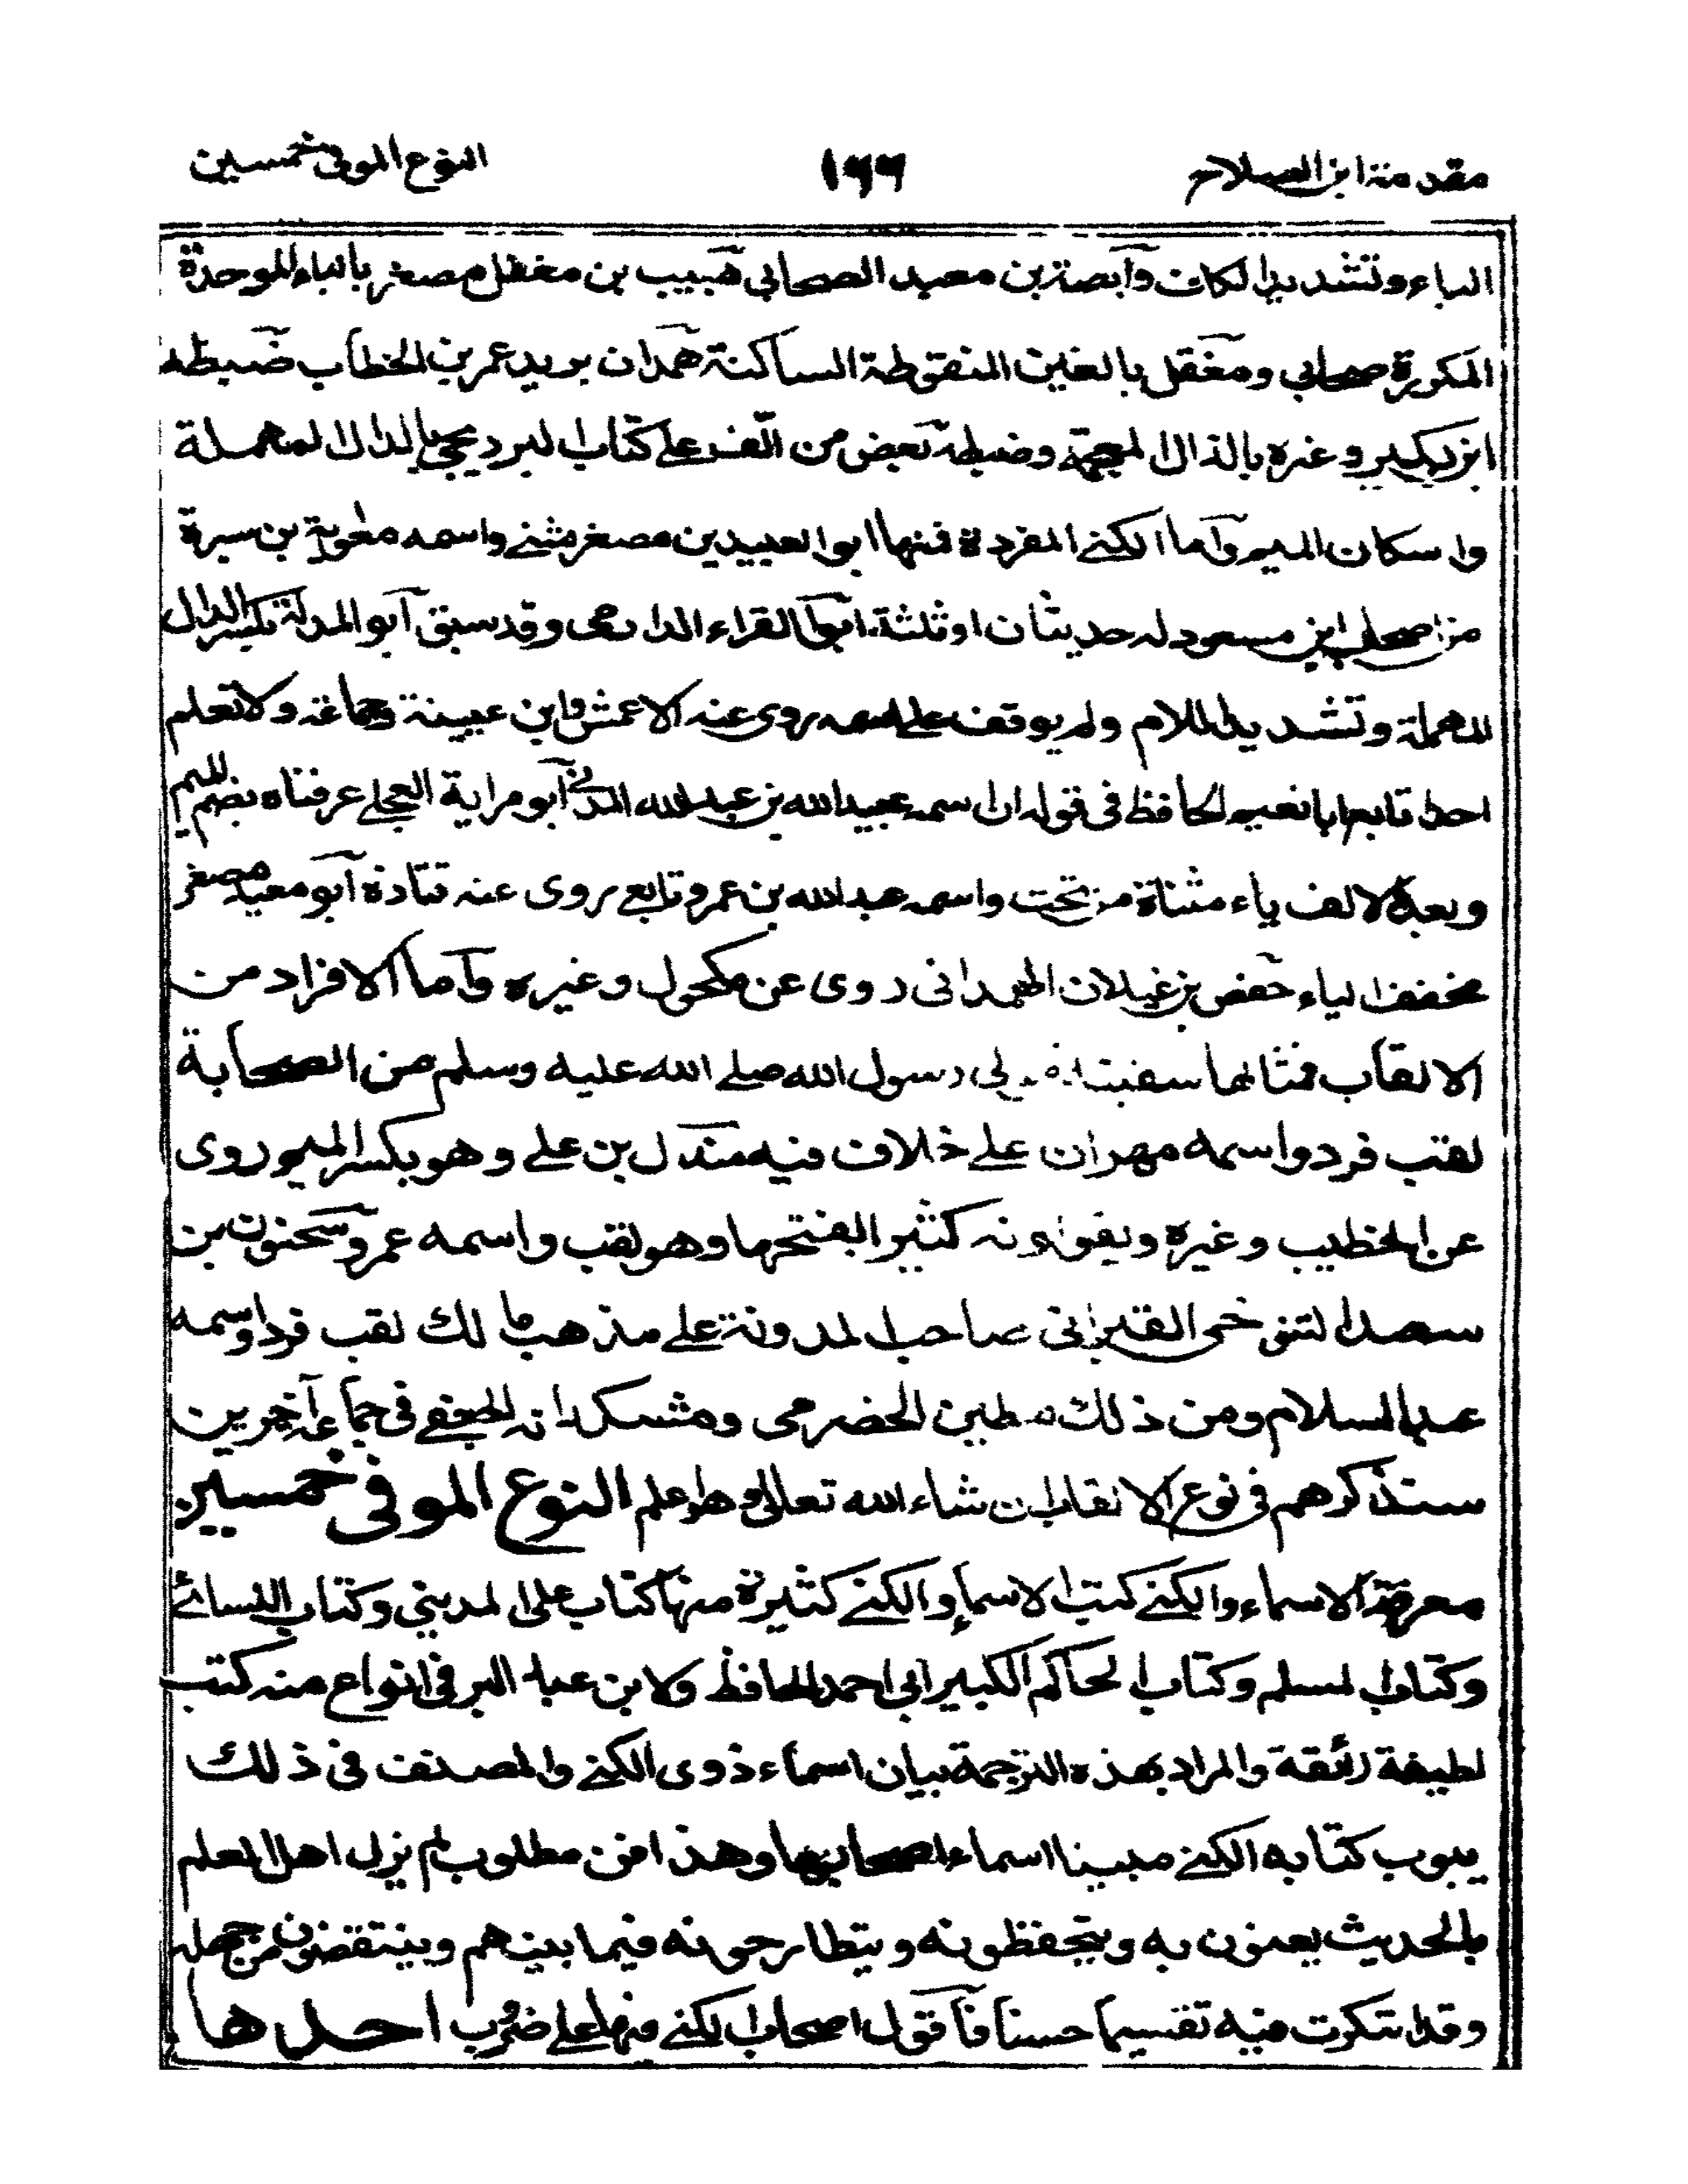 مقدمة ابن الصلاح ١٦٦ النوع الموفى خمسين
الباء وتشديد الكاف وآبصة بن معبد الصحابي هبيب بن مغفل مصغر بالباء الموحدة
المكررة صحابي ومغفل بالغين المنقوطة الساكنة همدان بريد عمر بن الخطاب ضبطه
ابن بكير وغيره بالذال المعجمة وضبطه بعض من الف على كتاب البرديجي بالدال المهملة
واسكان الميم وآما الكنے المفردة فمنها ابو العبيدين مصغر مثنے واسمه معٰوية بن سبرة
من اصحاب ابن مسعود له حديثان او ثلثة ابو العشراء الدارمی وقد سبق آبو المدلة بكسر الدال
المهملة وتشديد اللام ولم يوقف على اسمه روى عنه الاعمش وابن عيينة وجماعة ولا نعلم
احدا تابع ابا نعيم الحافظ في قوله ان اسمه عبيد الله بن عبد الله المدنی آبو مراية العجلے عرفناه بضم الميم
وبعد الالف ياء مثناة من تحت واسمه عبد الله بن عمرو تابعي روى عنه قتادة آبو معيد مصغر
مخفف الياء حفص بن غيلان الهمدانی روى عن مكحول وغيره وآما الافراد من
الالقاب فمثالها سفينة مولى رسول الله صلے الله عليه وسلم من الصحابة
لقب فرد واسمه مهران علے خلاف فيه مندل بن علے وهو بكسر الميم روى
عن الخطيب وغيره ويقولونه كثيرا بفتحها وهو لقب واسمه عمرو سحنون بن
سعد التنوخی القيرانی صاحب المدونة علے مذهب مالك لقب فرد واسمه
عبد السلام ومن ذلك مطين الحضرمی ومشكدانه الجعفے في جماعة آخرين
سنذكرهم في نوع الالقاب ان شاء الله تعالى وهو اعلم النوع الموفى خمسين
معرفة الاسماء والكنے كتب الاسماء والكنے كثيرة منها كتاب على المدينی وكتاب النسائے
وكتاب لمسلم وكتاب الحاكم الكبير ابی احمد الحافظ ولابن عبد البر فی انواع منه كتب
لطيفة رائقة والمراد بهذه الترجمة بيان اسماء ذوی الكنے والمصنف فی ذلك
يبوب كتابه الكنے مبينا اسماء اصحابها وهذا فن مطلوب لم يزل اهل العلم
بالحديث يعنون به ويتحفظونه ويتطارحونه فيما بينهم وينتقصون من جهله
وقد ابتكرت فيه تقسيما حسنا فآقول اصحاب الكنے فيها على ضروب احدها